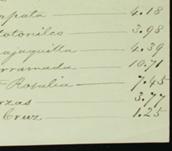 apata 4.18
otoniles 3.98
ajaquilla 4.39
erramada 10.71
Rosalia 7.45
rzas 3.77
Cruz 1.25